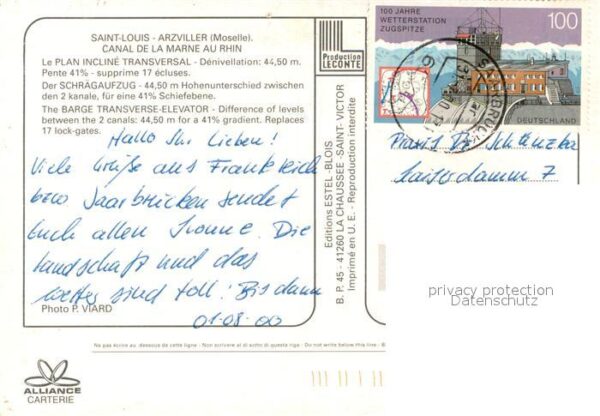 SAINT-LOUIS - ARZVILLER (Moselle).
CANAL DE LA MARNE AU RHIN
Le PLAN INCLINÉ TRANSVERSAL - Dénivellation: 44,50 m.
Pente 41% - supprime 17 écluses.
Der SCHRÄGAUFZUG - 44,50 m Hohenunterschied zwischen
den 2 kanale, für eine 41% Schiefebene.
The BARGE TRANSVERSE-ELEVATOR - Difference of levels
between the 2 canals: 44,50 m for a 41% gradient. Replaces
17 lock-gates.
Hallo Ihr Lieben!
Viele Grüße aus Frankreich
bzw Saarbrücken sendet
Euch allen Ivonne. Die
Landschaft und das
Wetter sind toll! Bis dann
01-08-00
Photo P. VIARD
Production
LECONTE
Editions ESTEL-BLOIS
B. P. 45 - 41260 LA CHAUSSEE-SAINT-VICTOR
Imprimé en U. E. - Reproduction interdite
100 JAHRE
WETTERSTATION
ZUGSPITZE
100
DEUTSCHLAND
Praxis Dr.
Kaiserdamm 7
privacy protection
Datenschutz
Ne pas écrire au-dessous de cette ligne - Non scrivere al di sotto di questa riga - Do not write below this line -
ALLIANCE
CARTERIE